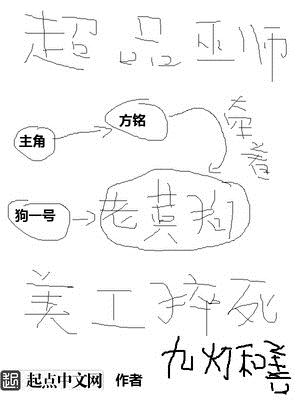 超品巫师
方铭
主角
牵着
狗一号
老黄狗
美工猝死
九灯和善
起点中文网 作者